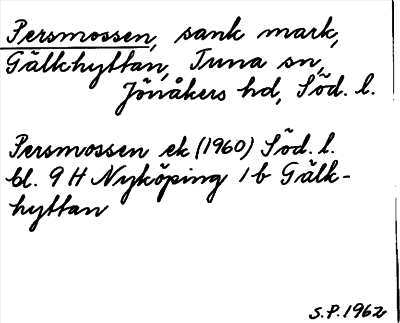 Persmossen, sank mark,
Gälkhyttan, Tuna sn,
Jönåkers hd, Söd. l.
Persmossen ek (1960) Söd. l.
bl. 9 H Nyköping 1 b Gälk-
hyttan
S.P. 1962